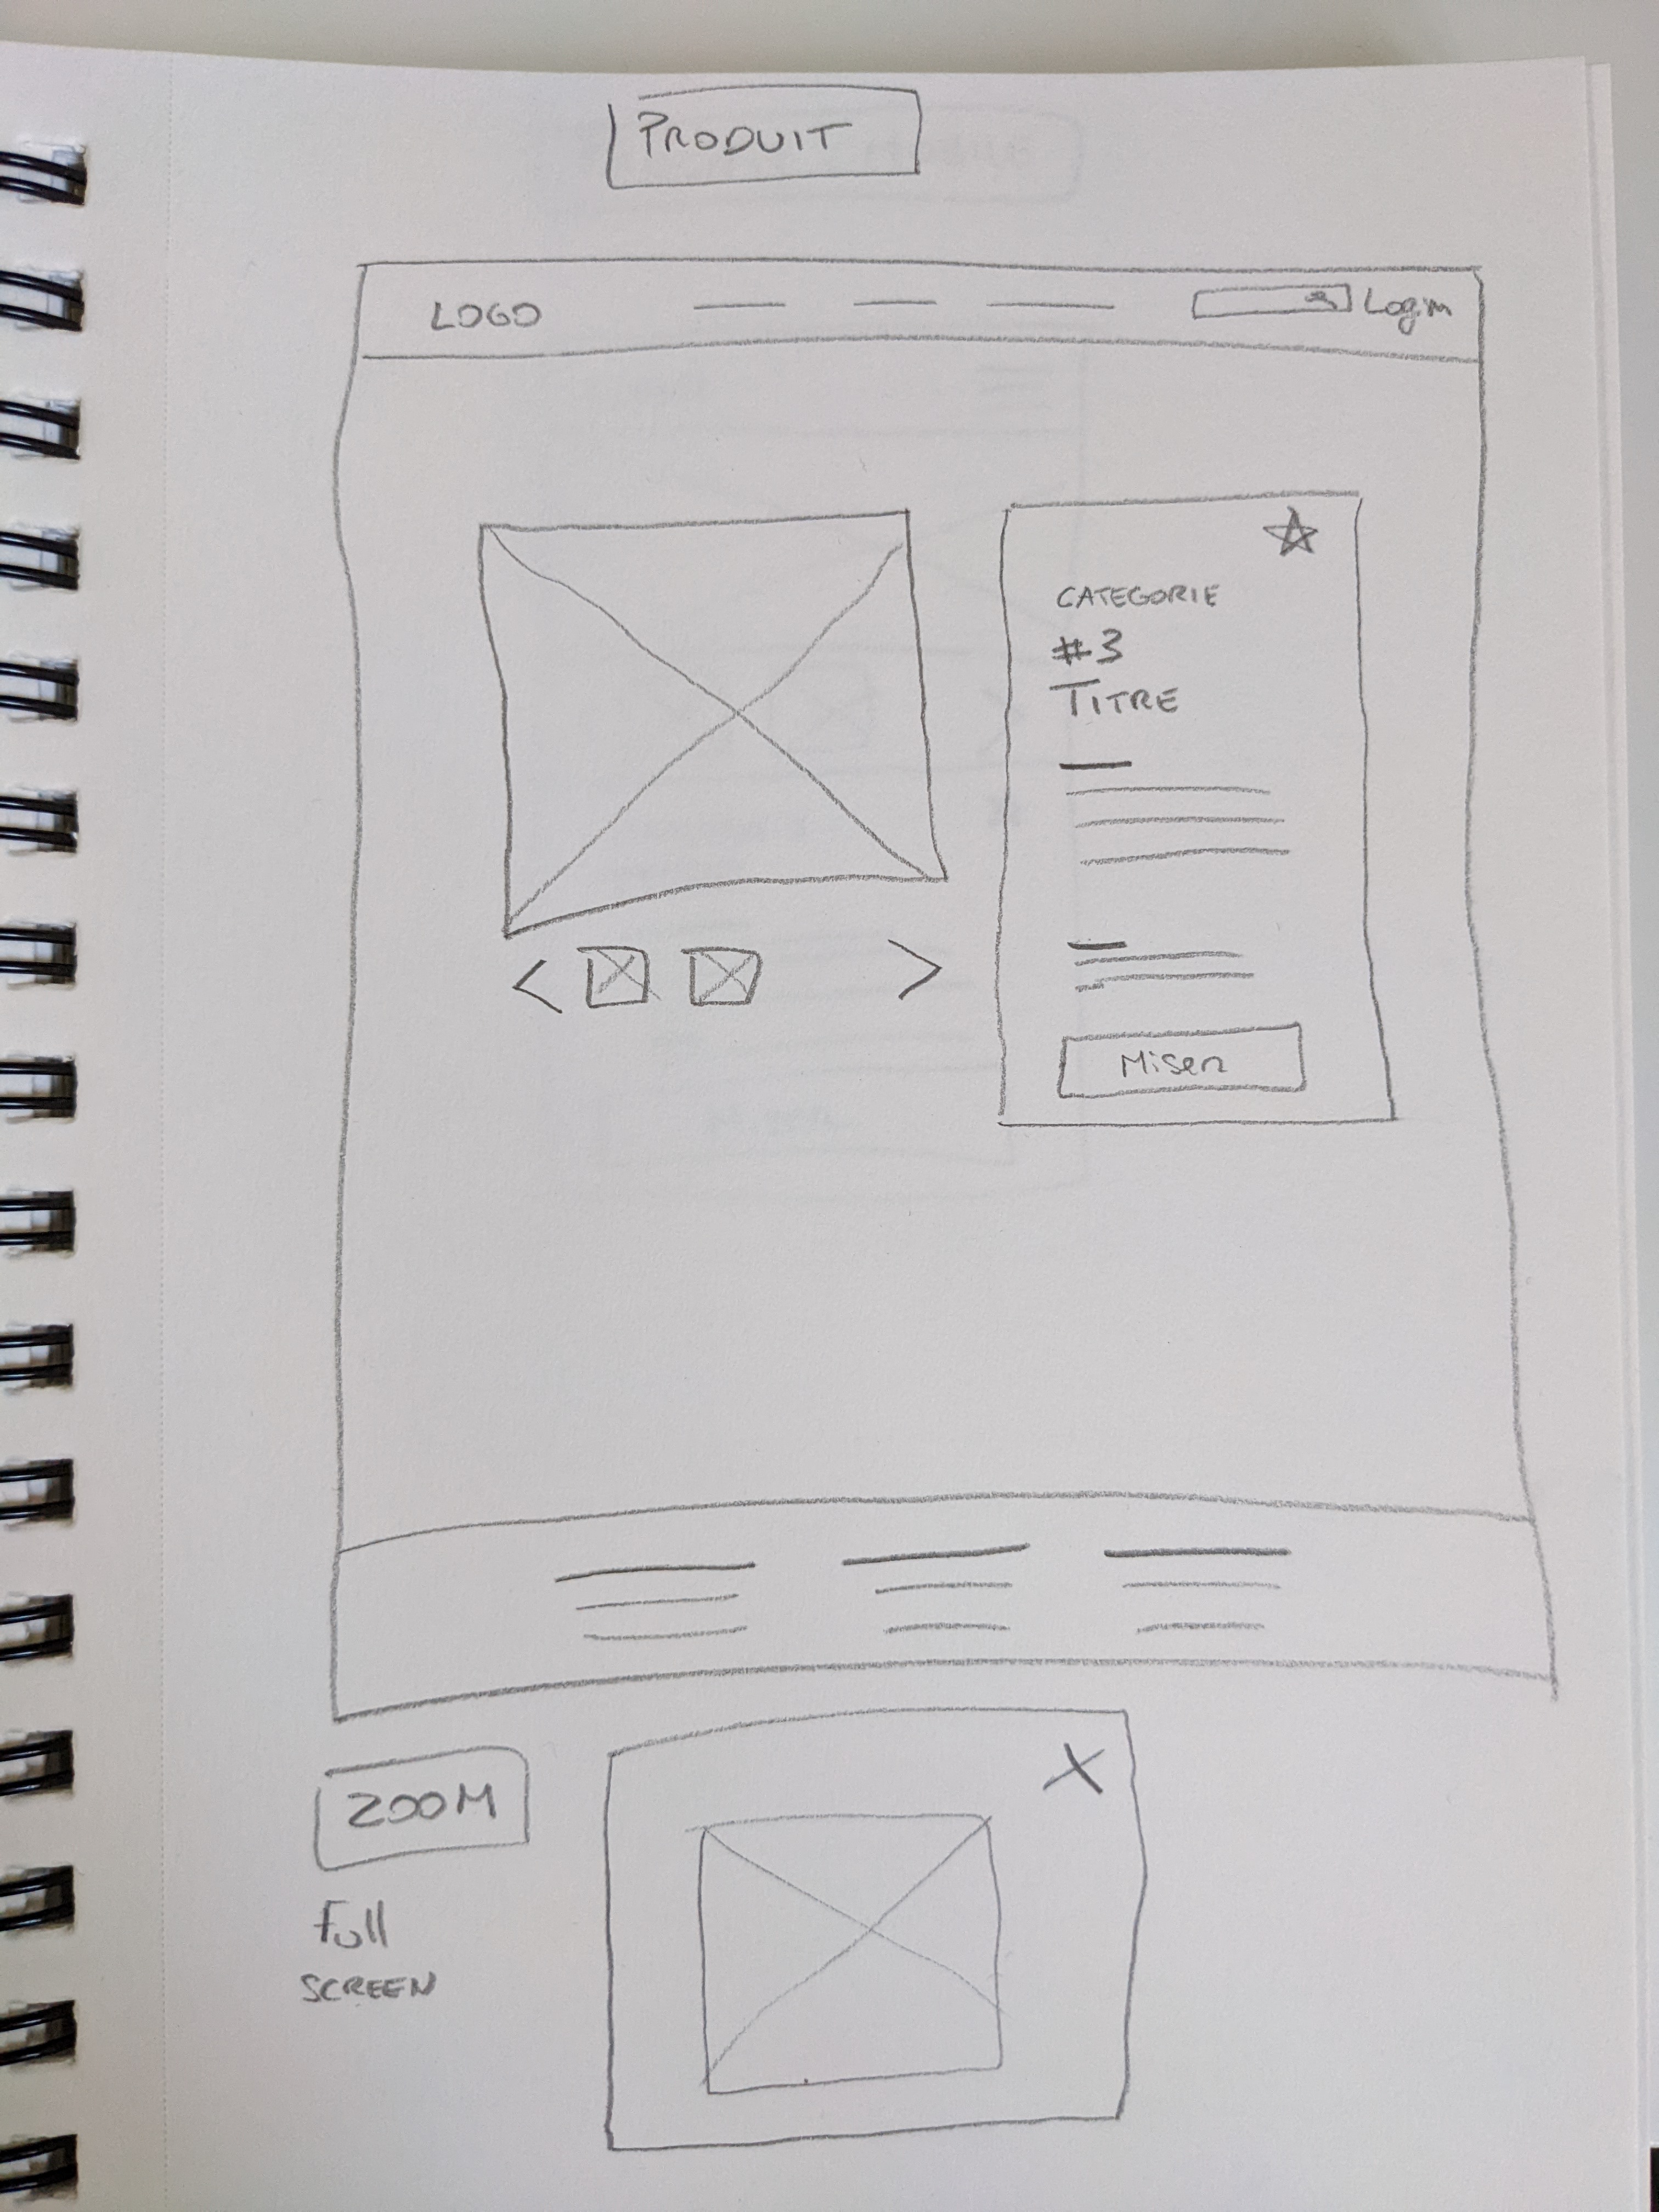 PRODUIT
LOGO
Login
CATEGORIE
#3
TITRE
Miser
X
ZOOM
Full
SCREEN